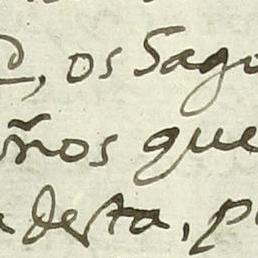 , os Sago
ños que
desta, p